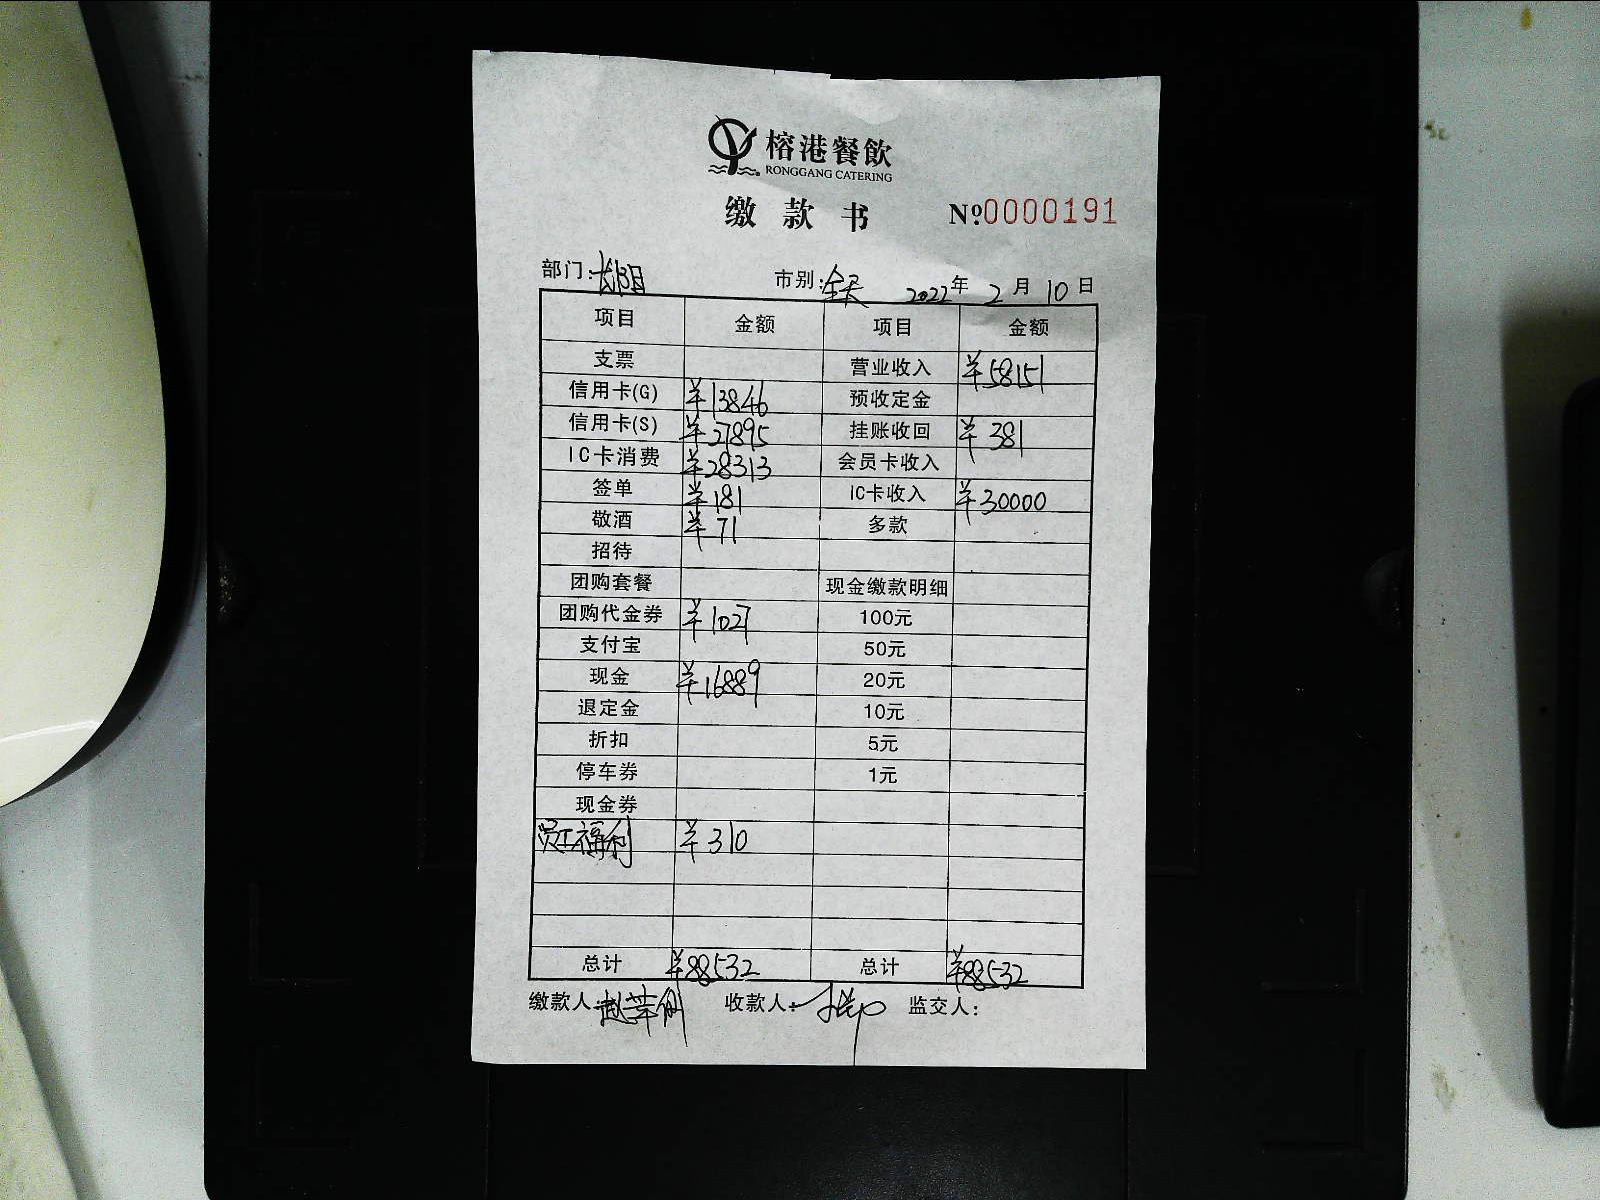 榕港餐飲
RONGGANG CATERING
缴款书 №0000191
部门:长阳 市别:全天 2022年2月10日
项目 金额 项目 金额
支票 营业收入 ¥58151
信用卡(G) ¥13846 预收定金
信用卡(S) ¥27895 挂账收回 ¥381
IC卡消费 ¥28313 会员卡收入
签单 ¥181 IC卡收入 ¥30000
敬酒 ¥71 多款
招待
团购套餐 现金缴款明细
团购代金券 ¥1027 100元
支付宝 50元
现金 ¥16889 20元
退定金 10元
折扣 5元
停车券 1元
现金券
员工福利 ¥310
总计 ¥88532 总计 ¥88532
缴款人: 收款人: 监交人: